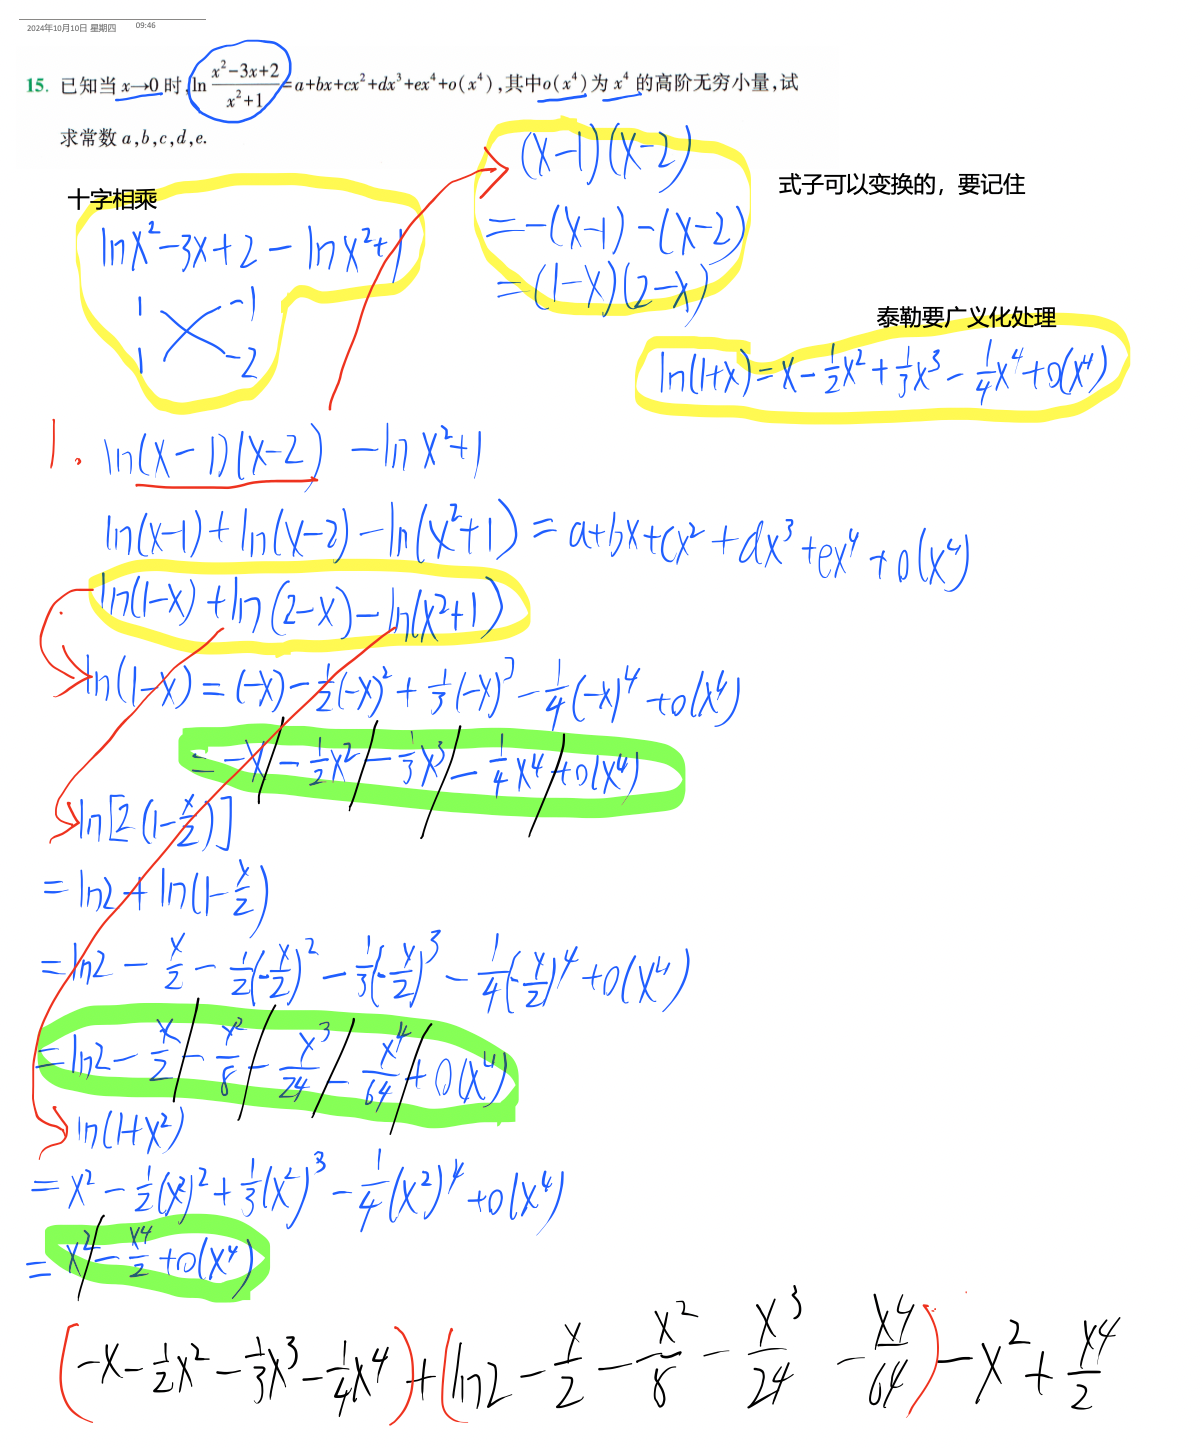 2024年10月10日 星期四 09:46
15. 已知当 x→0 时, ln (x²-3x+2)/(x²+1) = a+bx+cx²+dx³+ex⁴+o(x⁴), 其中o(x⁴)为 x⁴ 的高阶无穷小量, 试
求常数 a,b,c,d,e.
十字相乘
lnx²-3x+2 - lnx²+1
1 -1
1 -2
(x-1)(x-2)
=-(x-1)-(x-2)
=(1-x)(2-x)
式子可以变换的，要记住
泰勒要广义化处理
ln(1+x)=x-1/2x²+1/3x³-1/4x⁴+o(x⁴)
1. ln(x-1)(x-2) -ln x²+1
ln(x-1)+ln(x-2)-ln(x²+1) = a+bx+cx²+dx³+ex⁴+o(x⁴)
ln(1-x)+ln(2-x)-ln(x²+1)
ln(1-x)=(-x)-1/2(-x)²+1/3(-x)³-1/4(-x)⁴+o(x⁴)
=-x-1/2x²-1/3x³-1/4x⁴+o(x⁴)
ln[2(1-x/2)]
=ln2+ln(1-x/2)
=ln2-x/2-1/2(-x/2)²-1/3(-x/2)³-1/4(-x/2)⁴+o(x⁴)
=ln2-x/2-x²/8-x³/24-x⁴/64+o(x⁴)
ln(1+x²)
=x²-1/2(x²)²+1/3(x²)³-1/4(x²)⁴+o(x⁴)
=x²-x⁴/2+o(x⁴)
(-x-1/2x²-1/3x³-1/4x⁴)+(ln2-x/2-x²/8-x³/24-x⁴/64)-x²+x⁴/2